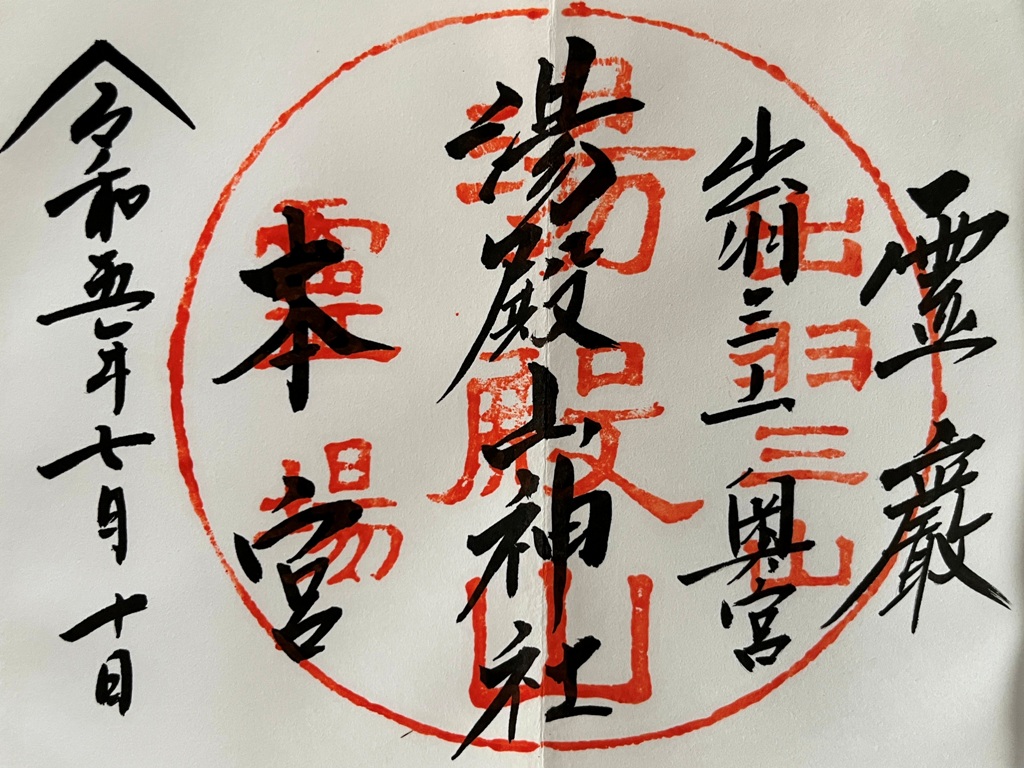 霊巌
出羽三山奥宮
湯殿山神社
本宮
令和五年七月十日
出羽三山
湯殿山
霊場